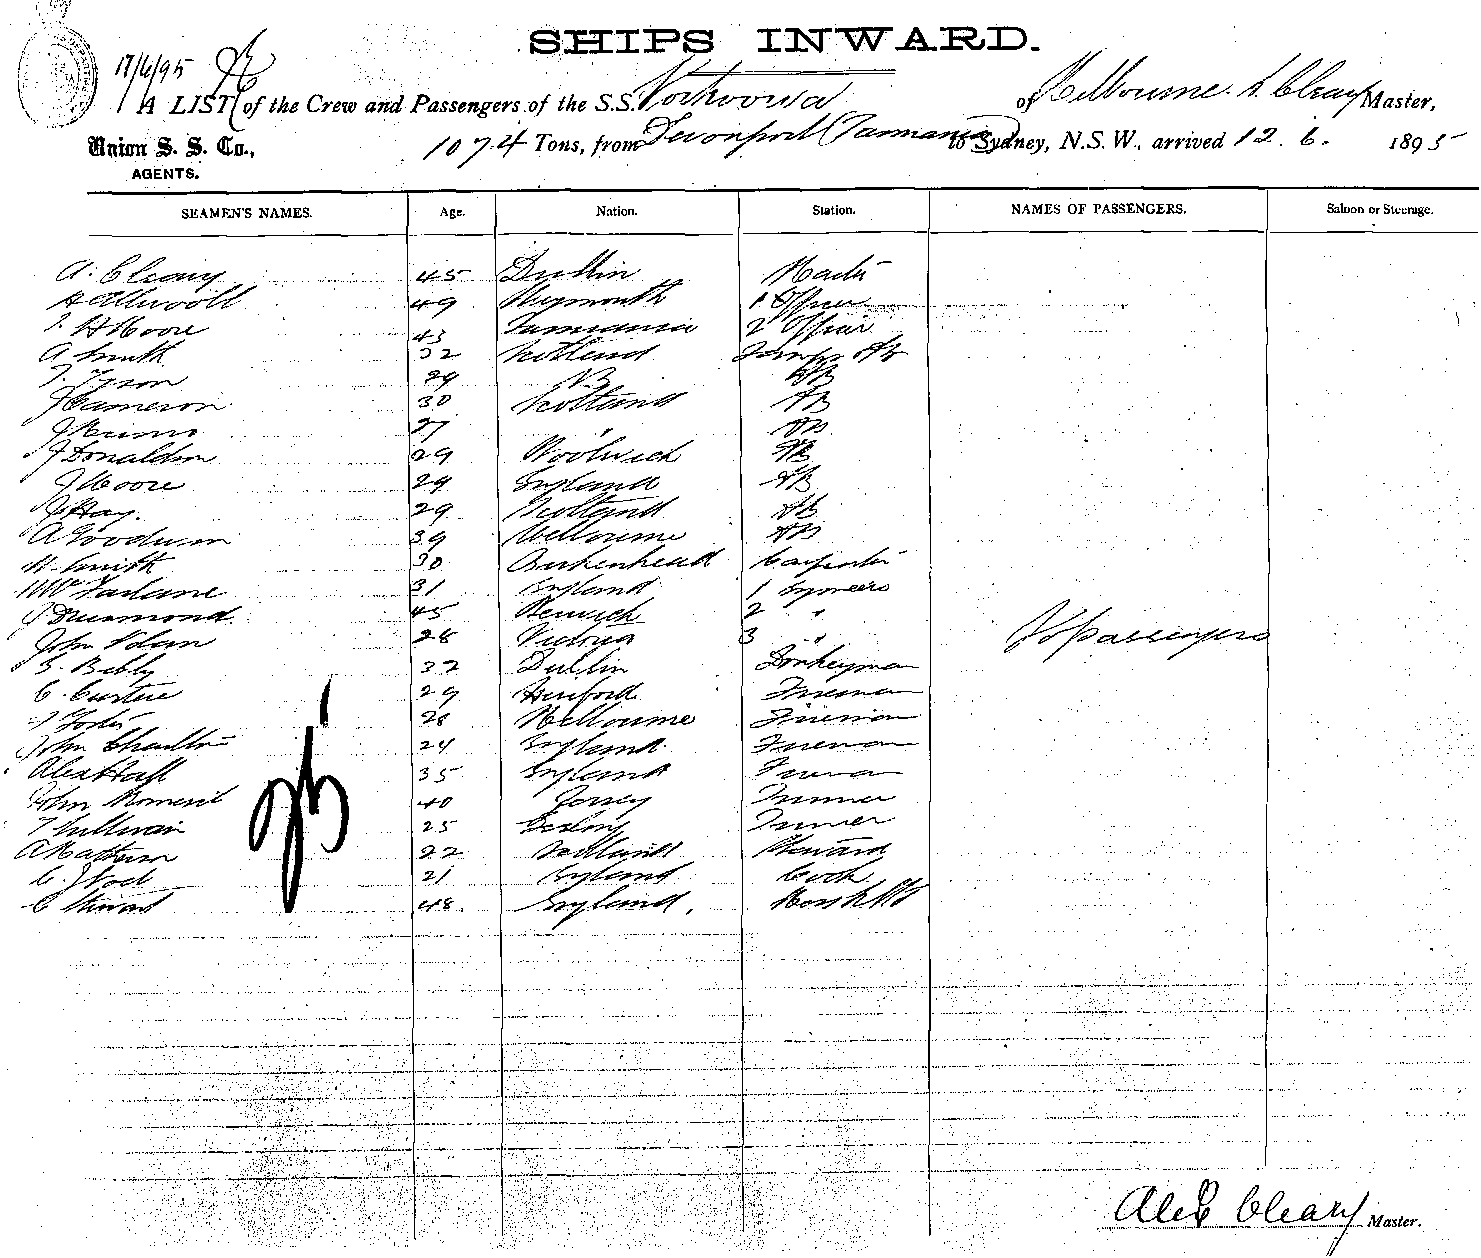 SHIPS INWARD.
17/6/95
A LIST of the Crew and Passengers of the S.S. of Melbourne. A. Cleary Master,
Union S. S. Co., 1074 Tons, from Devonport (Tasmania) to Sydney, N.S.W., arrived 12. 6. 1895
AGENTS.
SEAMEN'S NAMES. Age. Nation. Station. NAMES OF PASSENGERS. Saloon or Steerage.
A. Cleary 45 Dublin Master
49 Weymouth 1 Officer
Moore 43 Tasmania 2 Officer
A Smith 32 Scotland AB
Tyson 29 NB AB
J Cameron 30 Scotland AB
J 27 " AB
J Donaldson 29 Woolwich AB
J Moore 29 England AB
J Hay. 29 Scotland AB
A Goodwin 39 Melbourne AB
Smith 30 Birkenhead Carpenter
McFarlane 31 England 1 Engineer
Drummond 45 2 "
John 28 Victoria 3 "
No passengers
32 Dublin Donkeyman
C. 29 Hereford Fireman
Foster 28 Melbourne Fireman
John Charlton 24 England Fireman
Alex Hall 35 England Fireman
John Romeril 40 Jersey Trimmer
T Sullivan 25 Trimmer
A Matheson 22 Steward
C. 21 England Cook
C Stewart 48 England.
Alex Cleary Master.